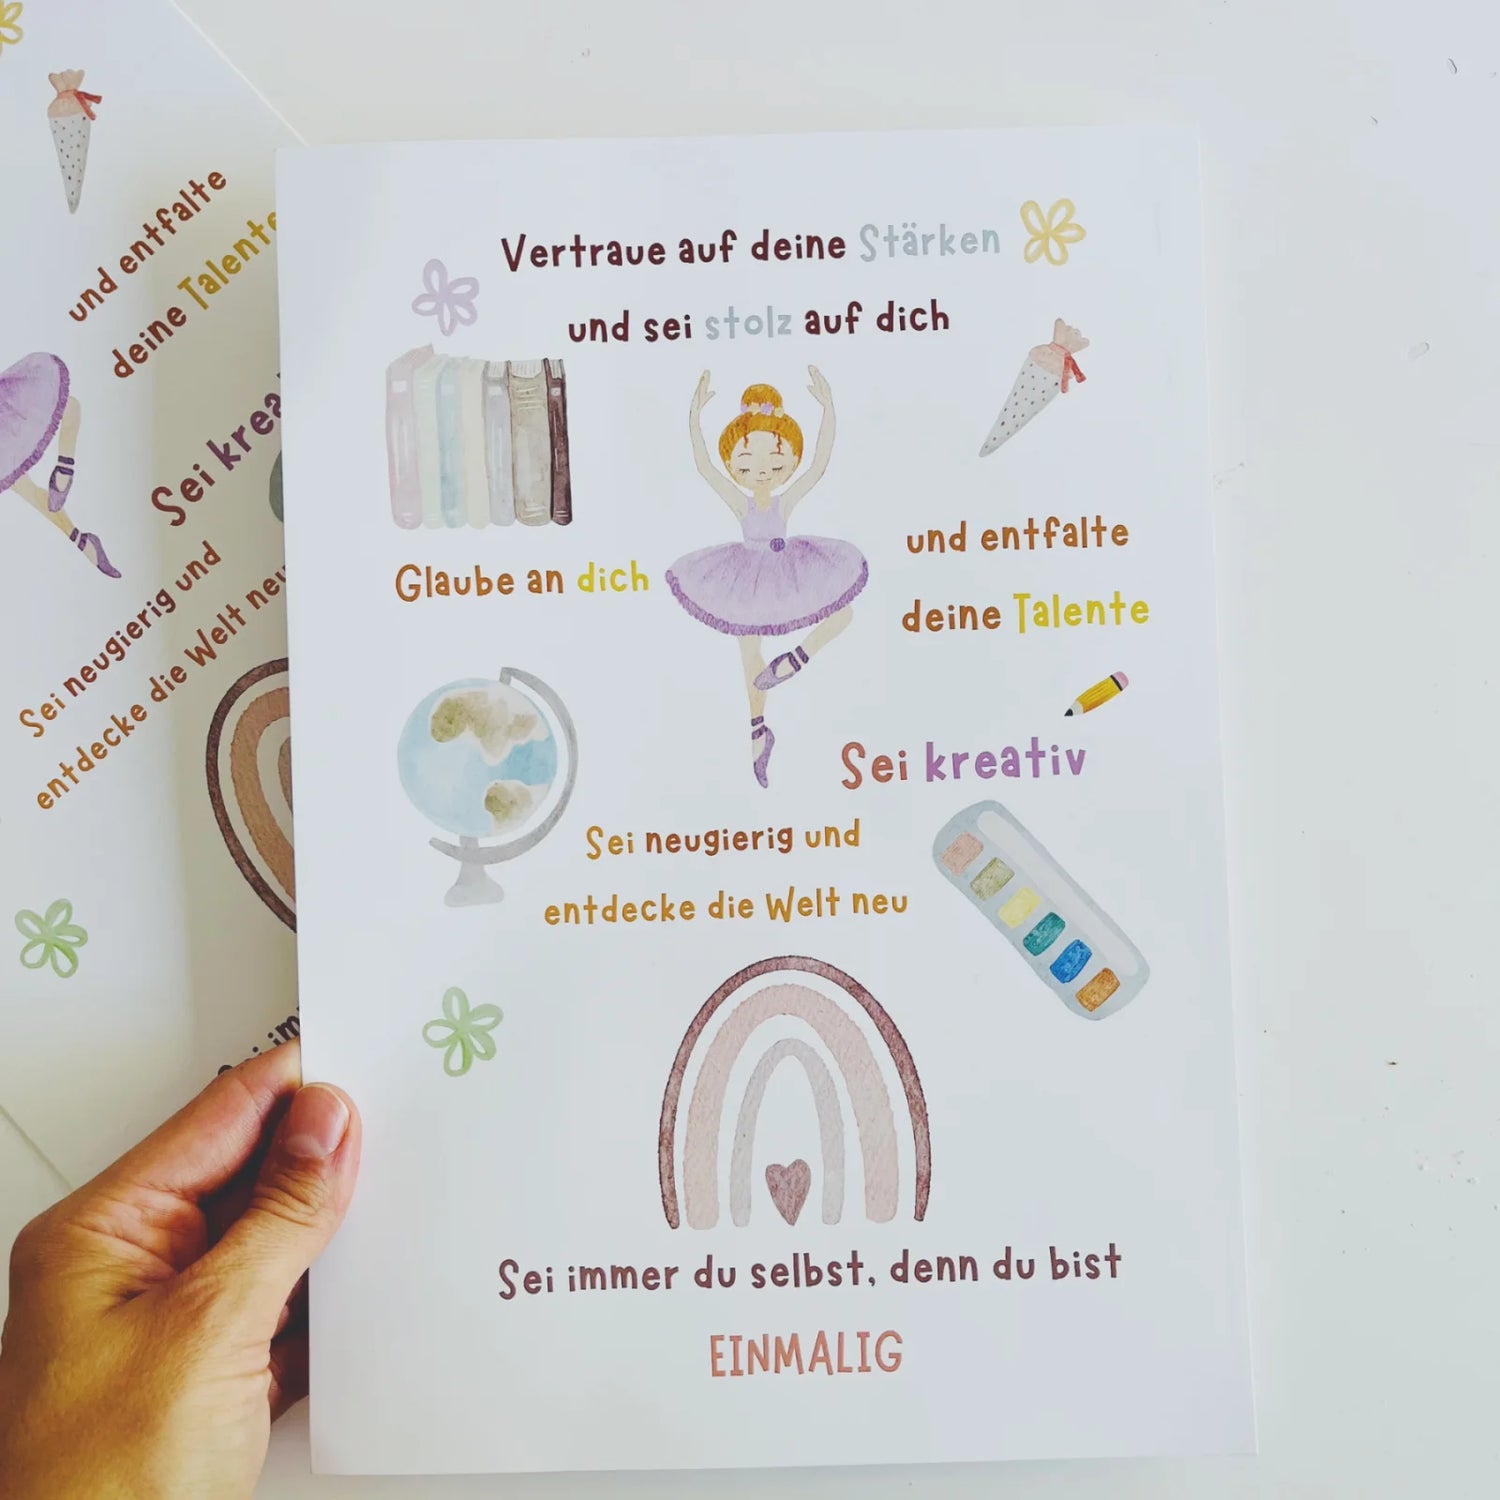 Vertraue auf deine Stärken
und sei stolz auf dich
Glaube an dich
und entfalte
deine Talente
Sei kreativ
Sei neugierig und
entdecke die Welt neu
Sei immer du selbst, denn du bist
EINMALIG
und entfalte
deine Talente
Sei
Sei neugierig und
entdecke die Welt neu